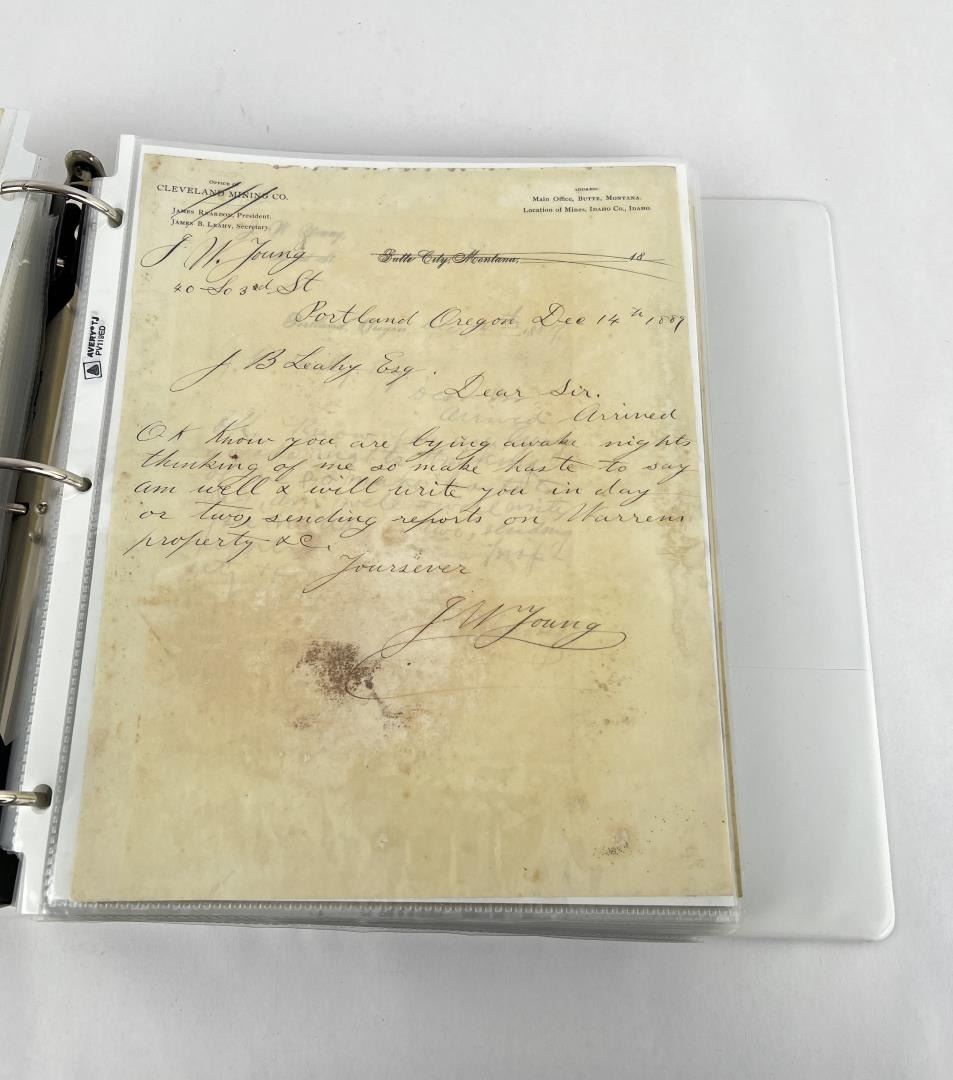 OFFICE OF
CLEVELAND MINING CO.
JAMES REARDON, President.
JAMES B. LEAHY, Secretary.
ADDRESS:
Main Office, BUTTE, MONTANA.
Location of Mines, IDAHO CO., IDAHO.
J. W. Young
40 So 3rd St
Butte City, Montana, 18
Portland Oregon Dec 14th 1889
J B Leahy Esq.
Dear Sir.
Arrived
OK Know you are lying awake nights
thinking of me so make haste to say
am well & will write you in day
or two, sending reports on Warrens
property &C.
Yours ever
J W Young
AVERY® TJ
PV119ED